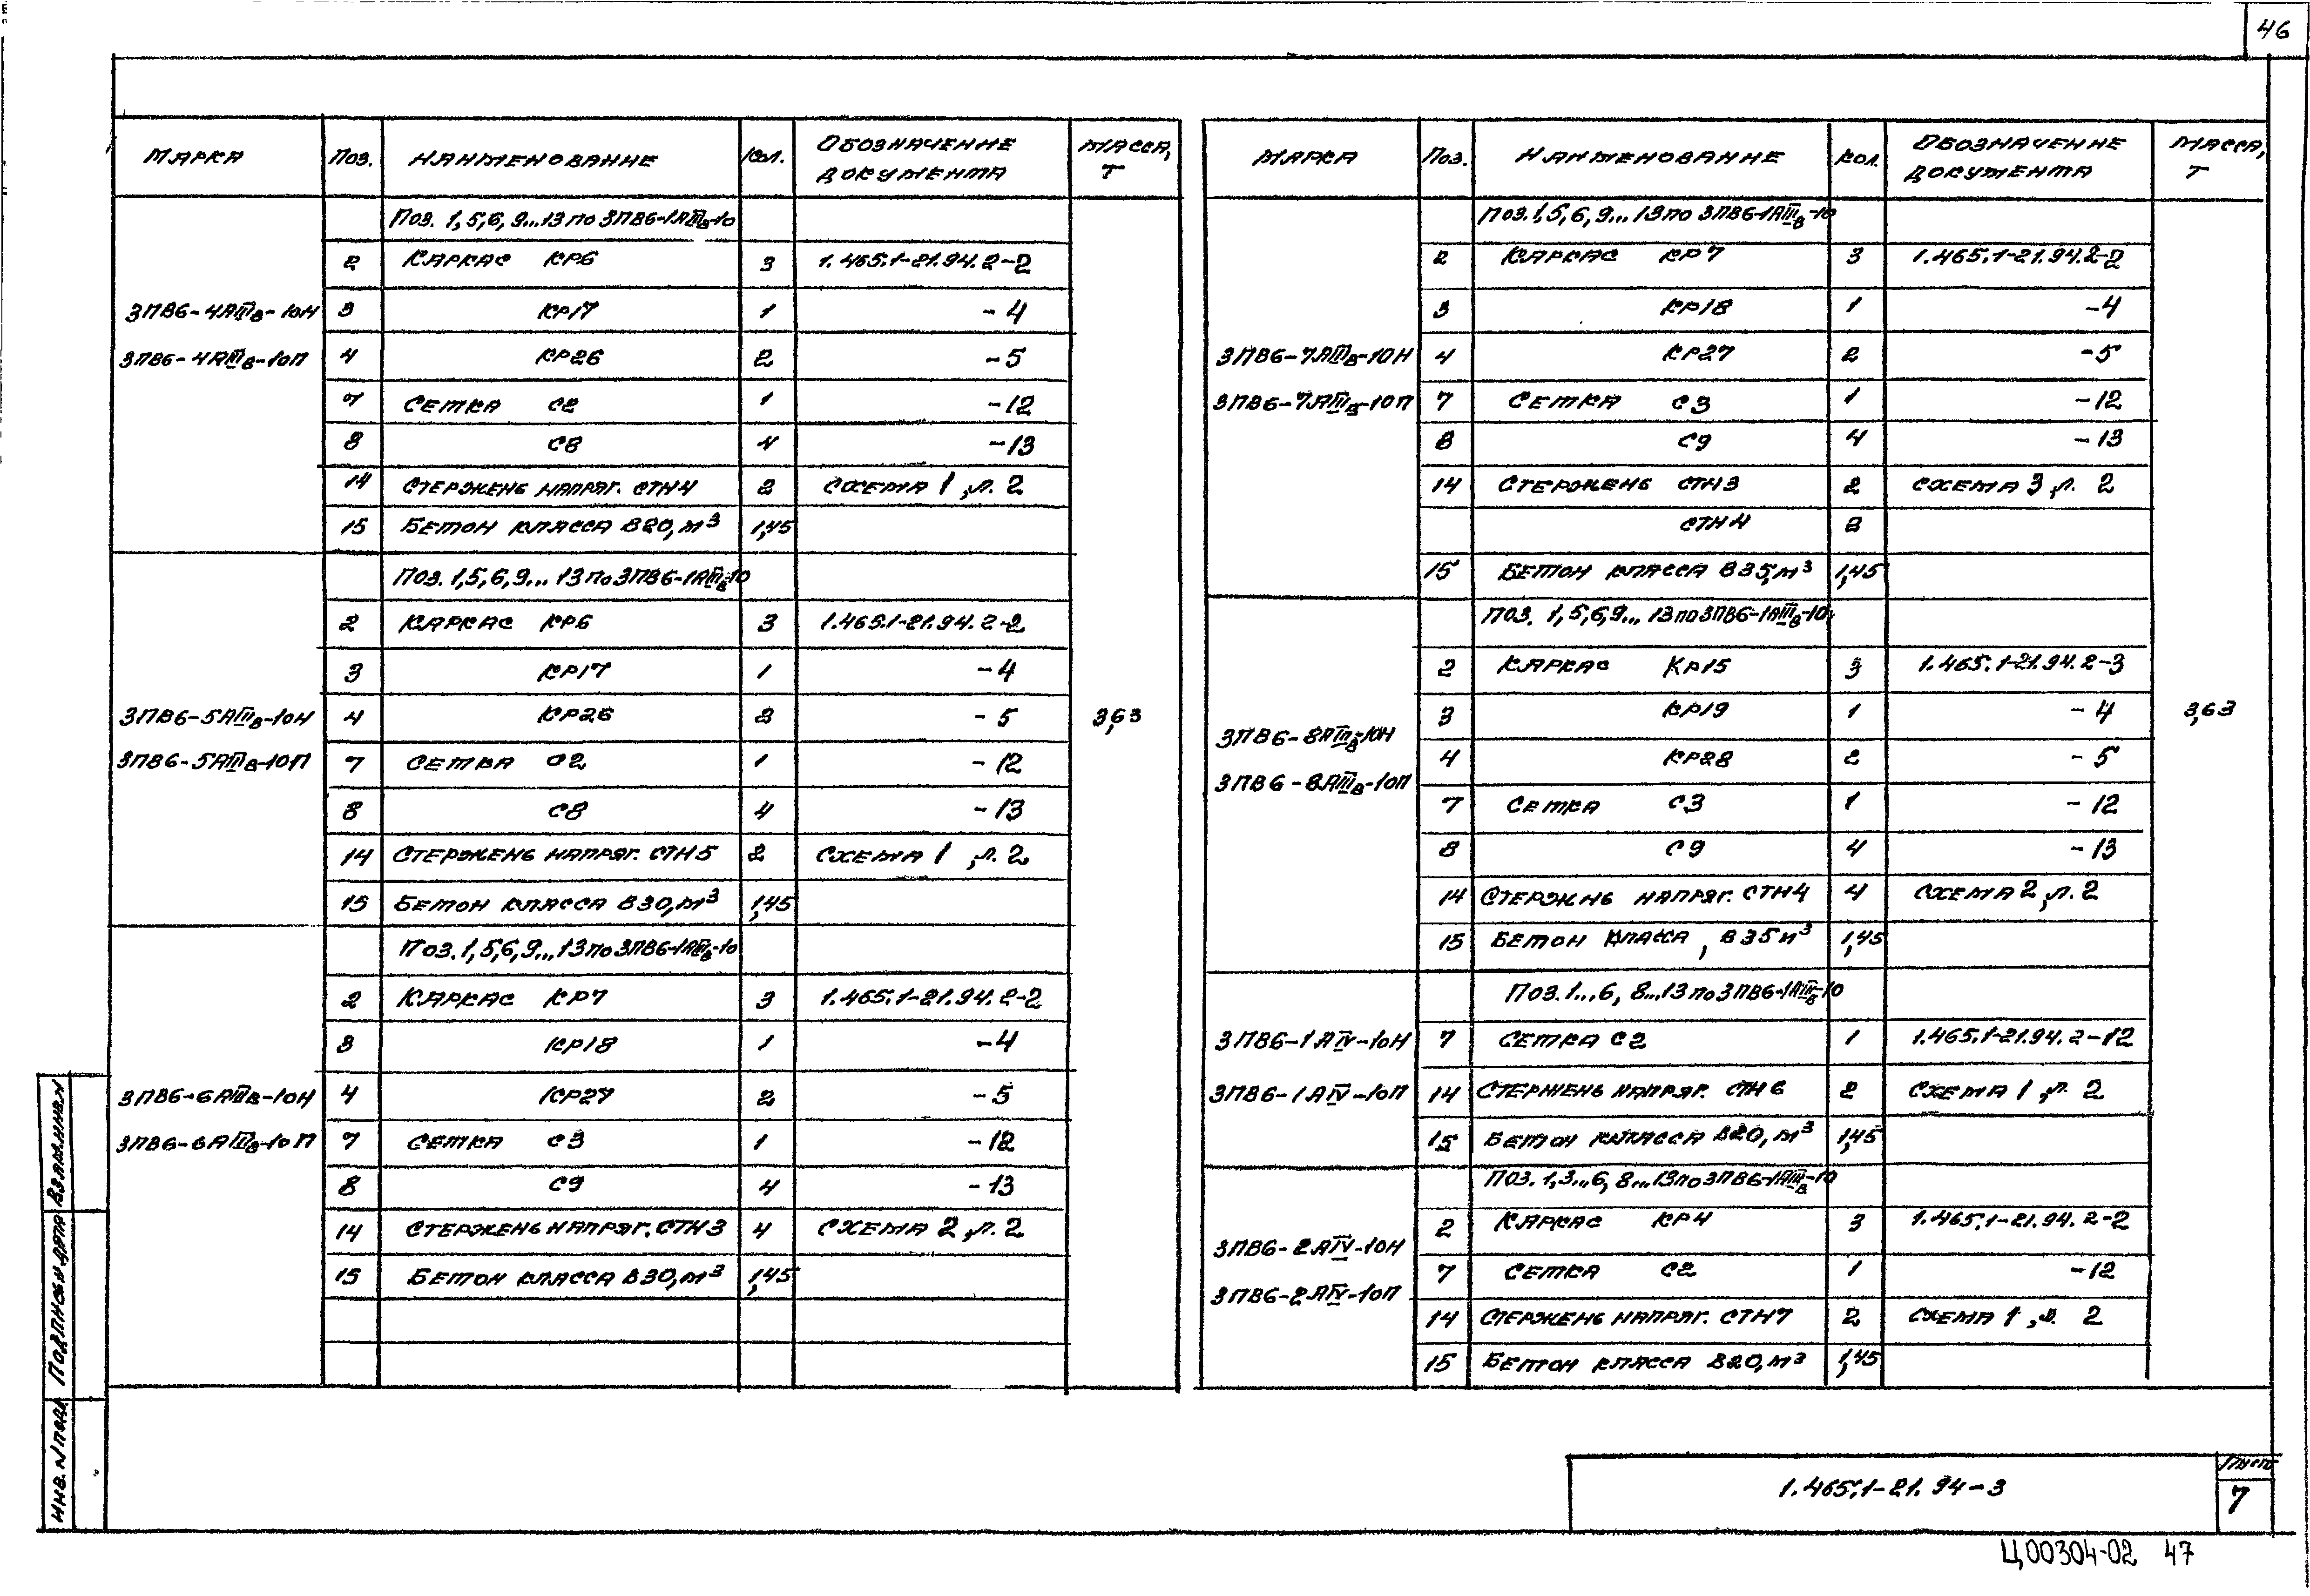 46
МАРКА Поз. НАИМЕНОВАНИЕ Кол. ОБОЗНАЧЕНИЕ ДОКУМЕНТА МАССА, Т
Поз. 1,5,6,9...13 по 3ПВ6-1АIIIв-10
2 КАРКАС КР6 3 1.465.1-21.94.2-2
3ПВ6-4АIIIв-10Н 3 КР17 1 -4
3ПВ6-4АIIIв-10П 4 КР26 2 -5
7 СЕТКА С2 1 -12
8 С8 4 -13
14 СТЕРЖЕНЬ НАПРЯГ. СТН4 2 СХЕМА 1, Л. 2
15 БЕТОН КЛАССА В20, м³ 1,45
Поз. 1,5,6,9...13 по 3ПВ6-1АIIIв-10
2 КАРКАС КР6 3 1.465.1-21.94.2-2
3 КР17 1 -4
3ПВ6-5АIIIв-10Н 4 КР26 2 -5 3,63
3ПВ6-5АIIIв-10П 7 СЕТКА С2 1 -12
8 С8 4 -13
14 СТЕРЖЕНЬ НАПРЯГ. СТН5 2 СХЕМА 1, Л. 2
15 БЕТОН КЛАССА В30, м³ 1,45
Поз. 1,5,6,9...13 по 3ПВ6-1АIIIв-10
2 КАРКАС КР7 3 1.465.1-21.94.2-2
3 КР18 1 -4
3ПВ6-6АIIIв-10Н 4 КР27 2 -5
3ПВ6-6АIIIв-10П 7 СЕТКА С3 1 -12
8 С9 4 -13
14 СТЕРЖЕНЬ НАПРЯГ. СТН3 4 СХЕМА 2, Л. 2
15 БЕТОН КЛАССА В30, м³ 1,45
МАРКА Поз. НАИМЕНОВАНИЕ Кол. ОБОЗНАЧЕНИЕ ДОКУМЕНТА МАССА, Т
Поз. 1,5,6,9...13 по 3ПВ6-1АIIIв-10
2 КАРКАС КР7 3 1.465.1-21.94.2-2
3 КР18 1 -4
3ПВ6-7АIIIв-10Н 4 КР27 2 -5
3ПВ6-7АIIIв-10П 7 СЕТКА С3 1 -12
8 С9 4 -13
14 СТЕРЖЕНЬ СТН3 2 СХЕМА 3, Л. 2
СТН4 2
15 БЕТОН КЛАССА В35, м³ 1,45
ПОЗ. 1,5,6,9...13 по 3ПВ6-1АIIIв-10
2 КАРКАС КР15 3 1.465.1-21.94.2-3
3 КР19 1 -4 3,63
3ПВ6-8АIIIв-10Н 4 КР28 2 -5
3ПВ6-8АIIIв-10П 7 СЕТКА С3 1 -12
8 С9 4 -13
14 СТЕРЖНЬ НАПРЯГ. СТН4 4 СХЕМА 2, Л. 2
15 БЕТОН КЛАССА, В35 м³ 1,45
Поз. 1...6, 8...13 по 3ПВ6-1АIIIв-10
3ПВ6-1АIV-10Н 7 СЕТКА С2 1 1.465.1-21.94.2-12
3ПВ6-1АIV-10П 14 СТЕРЖЕНЬ НАПРЯГ. СТН6 2 СХЕМА 1, Л. 2
15 БЕТОН КЛАССА В20, м³ 1,45
ПОЗ. 1,3...6, 8...13 по 3ПВ6-1АIIIв-10
2 КАРКАС КР4 3 1.465.1-21.94.2-2
3ПВ6-2АIV-10Н 7 СЕТКА С2 1 -12
3ПВ6-2АIV-10П 14 СТЕРЖЕНЬ НАПРЯГ. СТН7 2 СХЕМА 1, Л. 2
15 БЕТОН КЛАССА В20, м³ 1,45
ИНВ. № ПОДЛ ПОДПИСЬ И ДАТА ВЗАМ.ИНВ.№
1.465.1-21.94-3
Лист
7
Ц00304-02 47